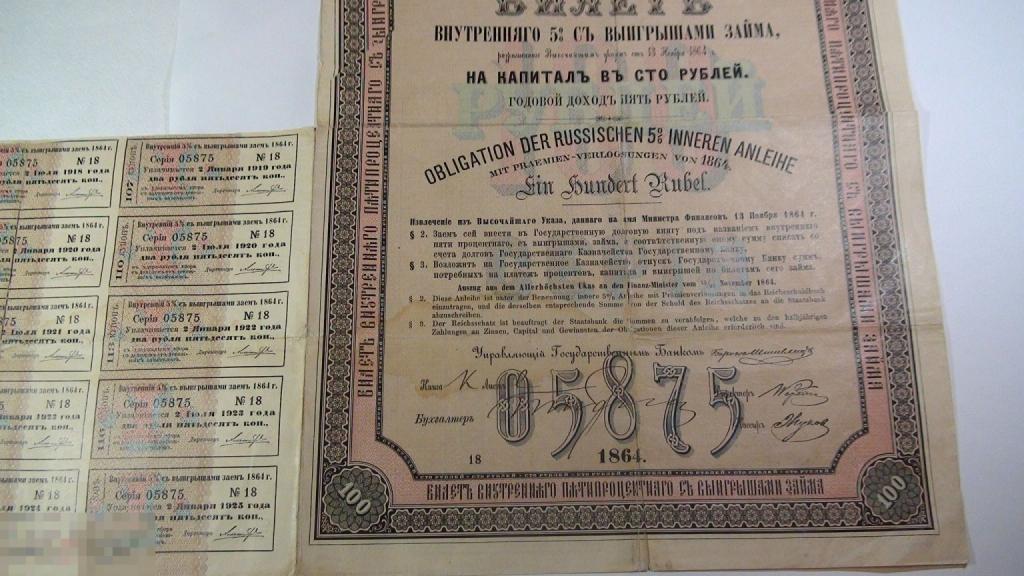 БИЛЕТЪ
ВНУТРЕННЯГО 5% СЪ ВЫИГРЫШАМИ ЗАЙМА,
13 Ноября 1864
НА КАПИТАЛЪ ВЪ СТО РУБЛЕЙ.
ГОДОВОЙ ДОХОДЪ ПЯТЬ РУБЛЕЙ.
OBLIGATION DER RUSSISCHEN 5% INNEREN ANLEIHE
MIT PRAEMIEN-VERLOOSUNGEN VON 1864.
Ein Hundert Rubel.
Извлеченіе изъ ВЫСОЧАЙШАГО Указа, даннаго на имя Министра Финансовъ 13 Ноября 1864 г.
§ 2. Заемъ сей внести въ Государственную долговую книгу подъ названіемъ внутренняго
пяти процентнаго, съ выигрышами, займа, а соотвѣтственную оному сумму списать со
счета долговъ Государственнаго Казначейства Государственному Банку.
§ 3. Возложить на Государственное Казначейство отпускъ Государственному Банку суммъ,
потребныхъ на платежъ процентовъ, капитала и выигрышей по билетамъ сего займа.
Auszug aus dem Allerhöchsten Ukas an den Finanz-Minister vom November 1864.
§ 2. Diese Anleihe ist unter der Benennung: innere 5% Anleihe mit Prämienverloosungen in das Reichsschuldbuch
einzutragen, und die derselben entsprechende Summe von der Schuld des Reichsschatzes an die Staatsbank
abzuschreiben.
§ 3. Der Reichsschatz ist beauftragt der Staatsbank die Summen zu verabfolgen, welche zu den halbjährigen
Zahlungen an Zinsen, Capital und Gewinnsten der Obligationen dieser Anleihe erforderlich sind.
Управляющій Государственнымъ Банкомъ
05875
Бухгалтеръ
18
1864.
100
БИЛЕТЪ ВНУТРЕННЯГО ПЯТИПРОЦЕНТНАГО СЪ ВЫИГРЫШАМИ ЗАЙМА
100
БИЛЕТЪ ВНУТРЕННЯГО ПЯТИПРОЦЕНТНАГО СЪ
ПЯТИПРОЦЕНТНАГО СЪ ВЫИГРЫШАМИ ЗАЙМА
05875 № 18
2 Іюля 1918 года
рубля пятьдесятъ коп.
Директоръ
107 КУПОНЪ
Внутренній 5% съ выигрышами заемъ 1864 г.
Серія 05875 № 18
Уплачивается 2 Января 1919 года
два рубля пятьдесятъ коп.
Директоръ
05875 № 18
2 Января 1920 года
110 КУПОНЪ
Внутренній 5% съ выигрышами заемъ 1864 г.
Серія 05875 № 18
Уплачивается 2 Іюля 1920 года
два рубля пятьдесятъ коп.
Директоръ
05875 № 18
Іюля 1921 года
113
Внутренній 5% съ выигрышами заемъ 1864 г.
Серія 05875 № 18
Уплачивается 2 Января 1922 года
два рубля пятьдесятъ коп.
Директоръ
№ 18
Января 1923 года
пятьдесятъ коп.
116
Внутренній 5% съ выигрышами заемъ 1864 г.
Серія 05875 № 18
Уплачивается 2 Іюля 1923 года
два рубля пятьдесятъ коп.,
Директоръ
№ 18
Іюля 1924 года
Внутренній 5% съ выигрышами заемъ 1864 г.
Серія 05875 № 18
Уплачивается 2 Января 1925 года
рубля пятьдесятъ коп.,
Директоръ